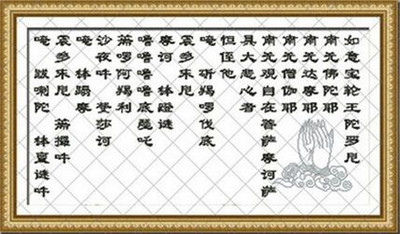 如意宝轮王陀罗尼
南无佛陀耶
南无达摩耶
南无僧伽耶
南无观自在菩萨摩诃萨
具大悲心者
怛侄他
唵 斫羯啰伐底
震多末尼
摩诃 钵蹬谜
噜噜噜噜底瑟吒
啰阿羯利
沙夜吽 癹莎诃
唵 钵蹋摩
震多末尼 攞吽
唵 跋喇陀 钵亶谜吽